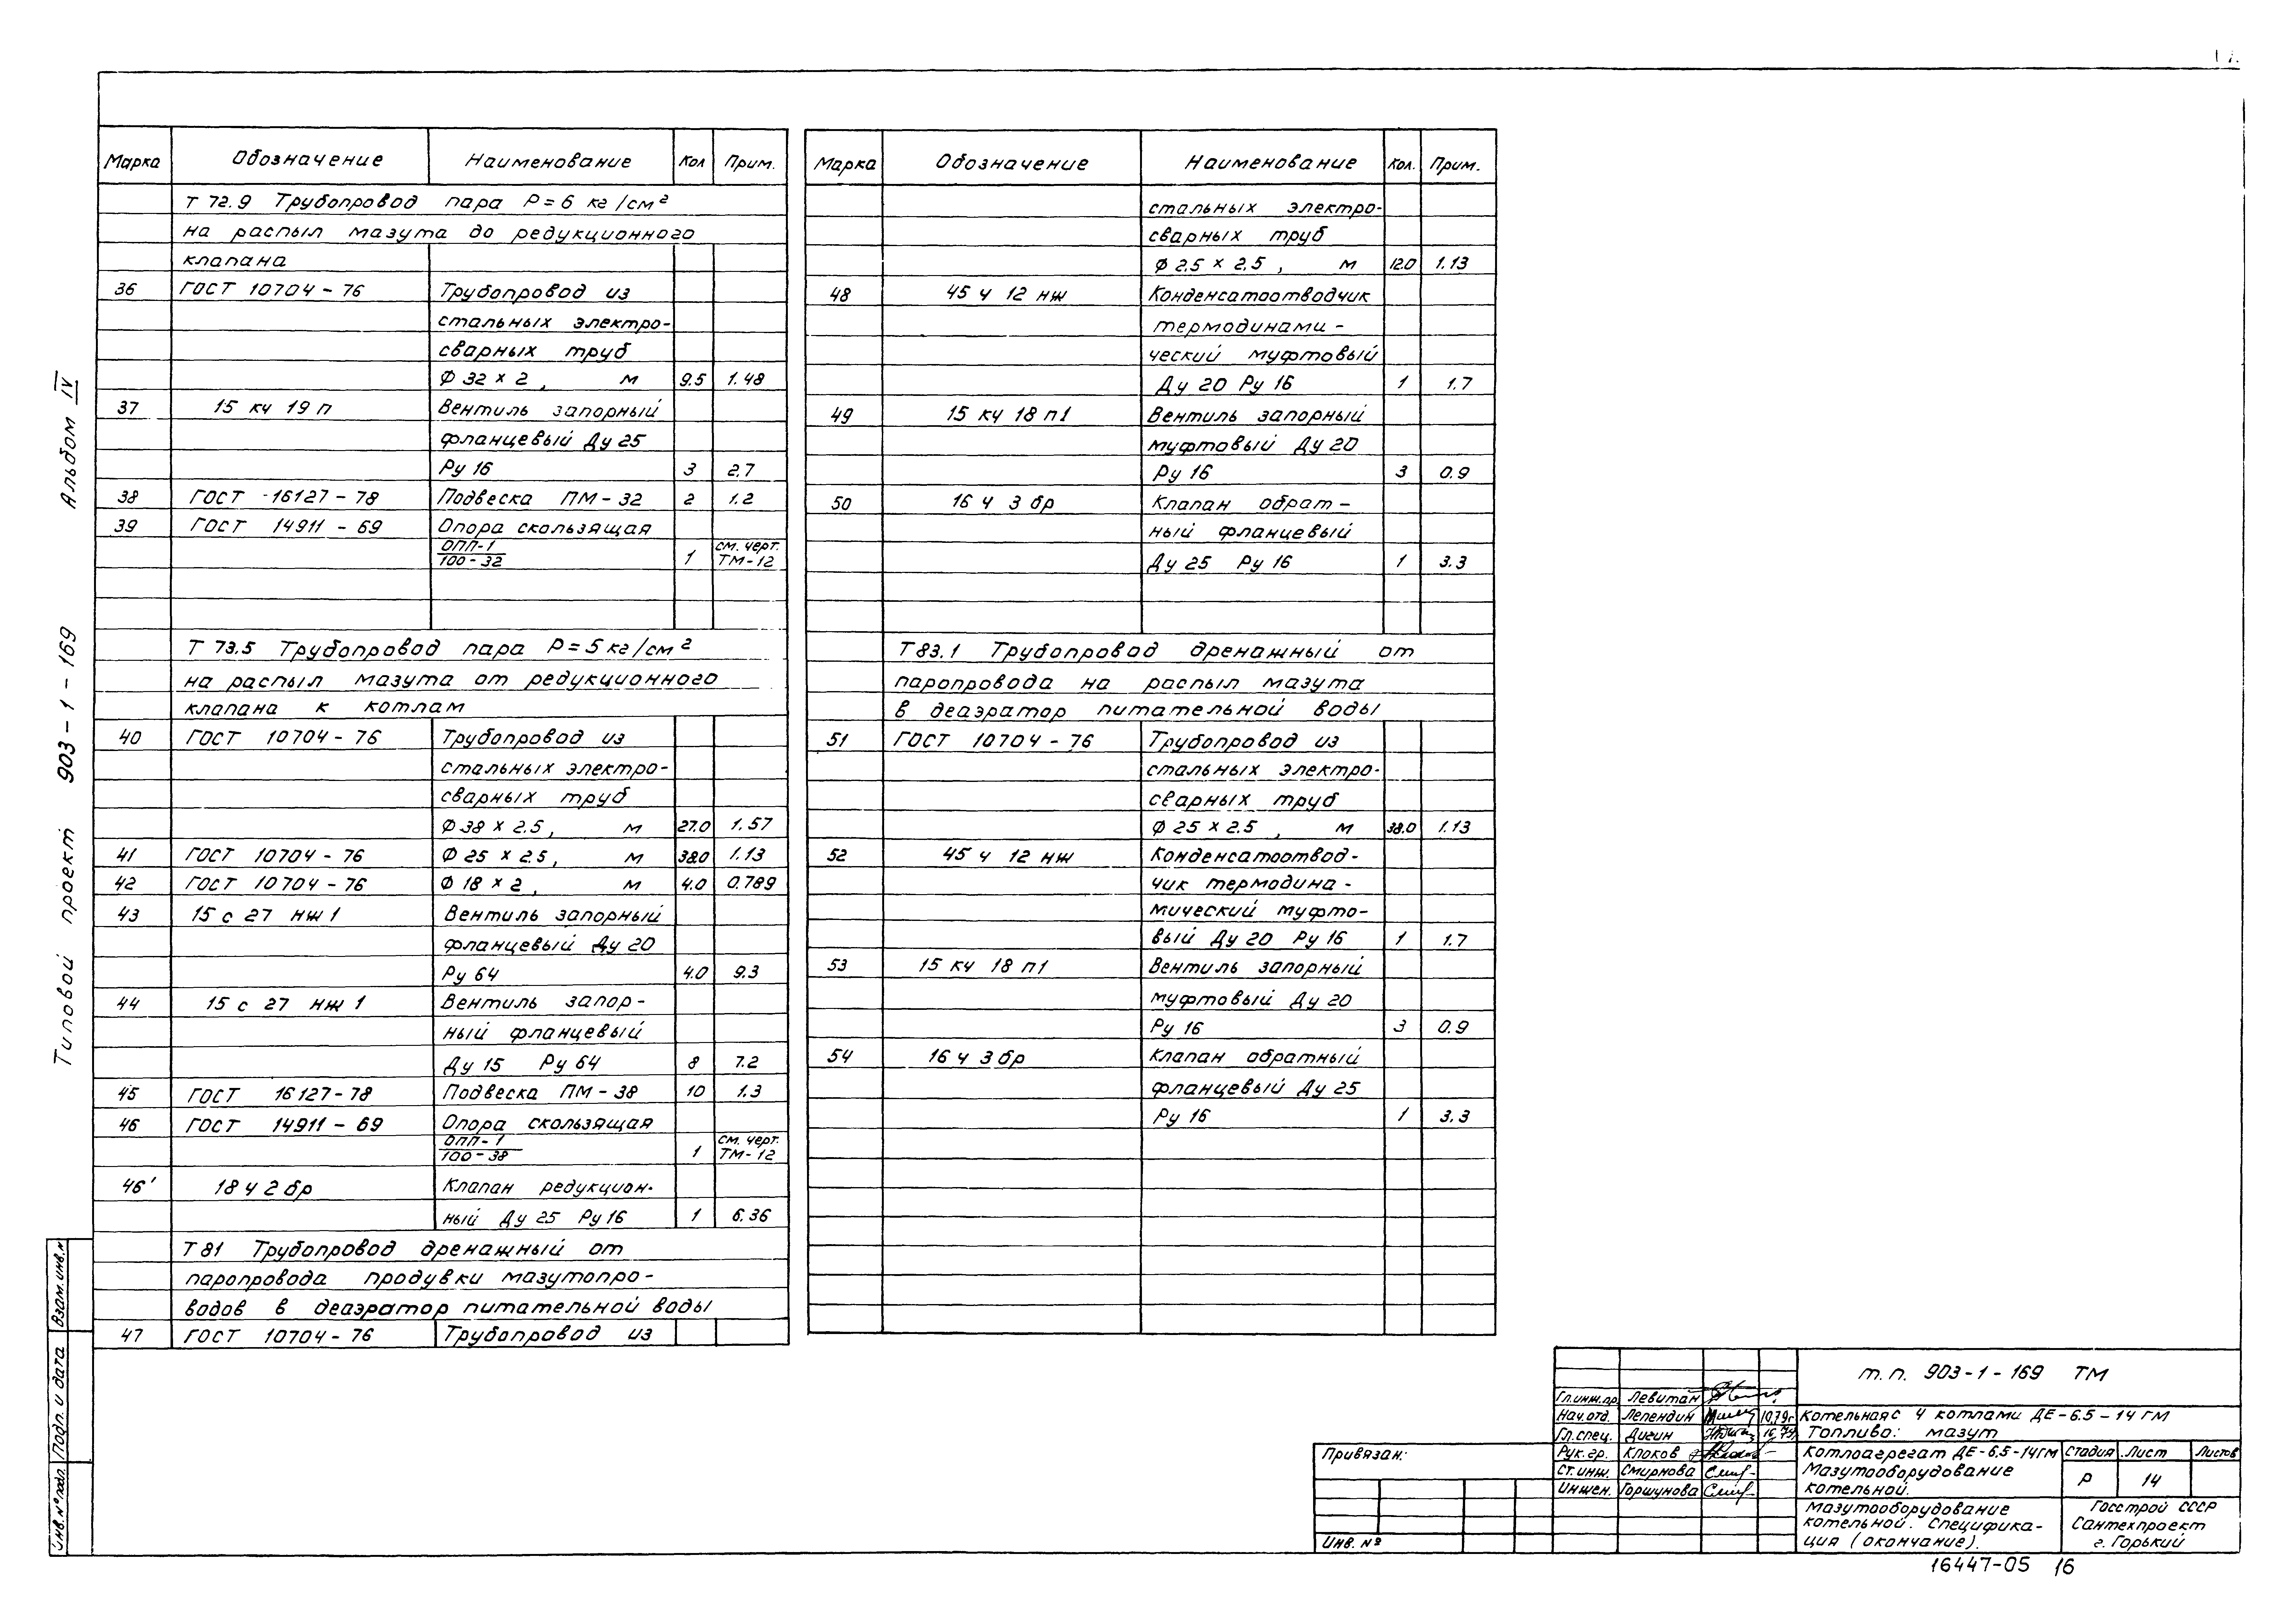 Марка Обозначение Наименование Кол Прим.
Т 72.9 Трубопровод пара Р = 6 кг/см²
на распыл мазута до редукционного
клапана
36 ГОСТ 10704 - 76 Трубопровод из
стальных электро-
сварных труб
Ф 32 × 2 , м 9.5 1.48
37 15 кч 19 п Вентиль запорный
фланцевый Ду 25
Ру 16 3 2.7
38 ГОСТ 16127 - 78 Подвеска ПМ - 32 2 1.2
39 ГОСТ 14911 - 69 Опора скользящая
ОПП-1 см. черт.
100 - 32 1 ТМ - 12
Т 73.5 Трубопровод пара Р = 5 кг/см²
на распыл мазута от редукционного
клапана к котлам
40 ГОСТ 10704 - 76 Трубопровод из
стальных электро-
сварных труб
Ф 38 × 2.5 , м 27.0 1.57
41 ГОСТ 10704 - 76 Ф 25 × 2.5 , м 38.0 1.13
42 ГОСТ 10704 - 76 Ф 18 × 2 , м 4.0 0.789
43 15 с 27 нж 1 Вентиль запорный
фланцевый Ду 20
Ру 64 4.0 9.3
44 15 с 27 нж 1 Вентиль запор -
ный фланцевый
Ду 15 Ру 64 8 7.2
45 ГОСТ 16127 - 78 Подвеска ПМ - 38 10 1.3
46 ГОСТ 14911 - 69 Опора скользящая
ОПП - 1 см. черт.
100 - 38 1 ТМ - 12
46' 18 ч 2 бр Клапан редукцион-
ный Ду 25 Ру 16 1 6.36
Т 81 Трубопровод дренажный от
паропровода продувки мазутопро -
водов в деаэратор питательной воды
47 ГОСТ 10704 - 76 Трубопровод из
Марка Обозначение Наименование Кол. Прим.
стальных электро-
сварных труб
Ф 2.5 × 2.5 , м 12.0 1.13
48 45 ч 12 нж Конденсатоотводчик
термодинами -
ческий муфтовый
Ду 20 Ру 16 1 1.7
49 15 кч 18 п1 Вентиль запорный
муфтовый Ду 20
Ру 16 3 0.9
50 16 ч 3 бр Клапан обрат -
ный фланцевый
Ду 25 Ру 16 1 3.3
Т 83.1 Трубопровод дренажный от
паропровода на распыл мазута
в деаэратор питательной воды
51 ГОСТ 10704 - 76 Трубопровод из
стальных электро-
сварных труб
Ф 25 × 2.5 , м 38.0 1.13
52 45 ч 12 нж Конденсатоотвод -
чик термодина -
мический муфто-
вый Ду 20 Ру 16 1 1.7
53 15 кч 18 п1 Вентиль запорный
муфтовый Ду 20
Ру 16 3 0.9
54 16 ч 3 бр Клапан обратный
фланцевый Ду 25
Ру 16 1 3.3
Типовой проект 903 - 1 - 169 Альбом IV
Взам. инв. №
Подп. и дата
Инв. № подл.
Привязан:
Инв. №
Гл.инж.пр. Левитан
Нач.отд. Лепендин 10.79г
Гл.спец. Дигин
Рук.гр. Клоков
Ст.инж. Смирнова
Инжен. Горшунова
т.п. 903-1-169 ТМ
Котельная с 4 котлами ДЕ-6.5-14 ГМ
Топливо: мазут
Котлоагрегат ДЕ-6.5-14ГМ
Мазутооборудование
котельной.
Стадия Лист Листов
Р 14
Мазутооборудование
котельной. Специфика-
ция (окончание).
Госстрой СССР
Сантехпроект
г. Горький
16447-05 16